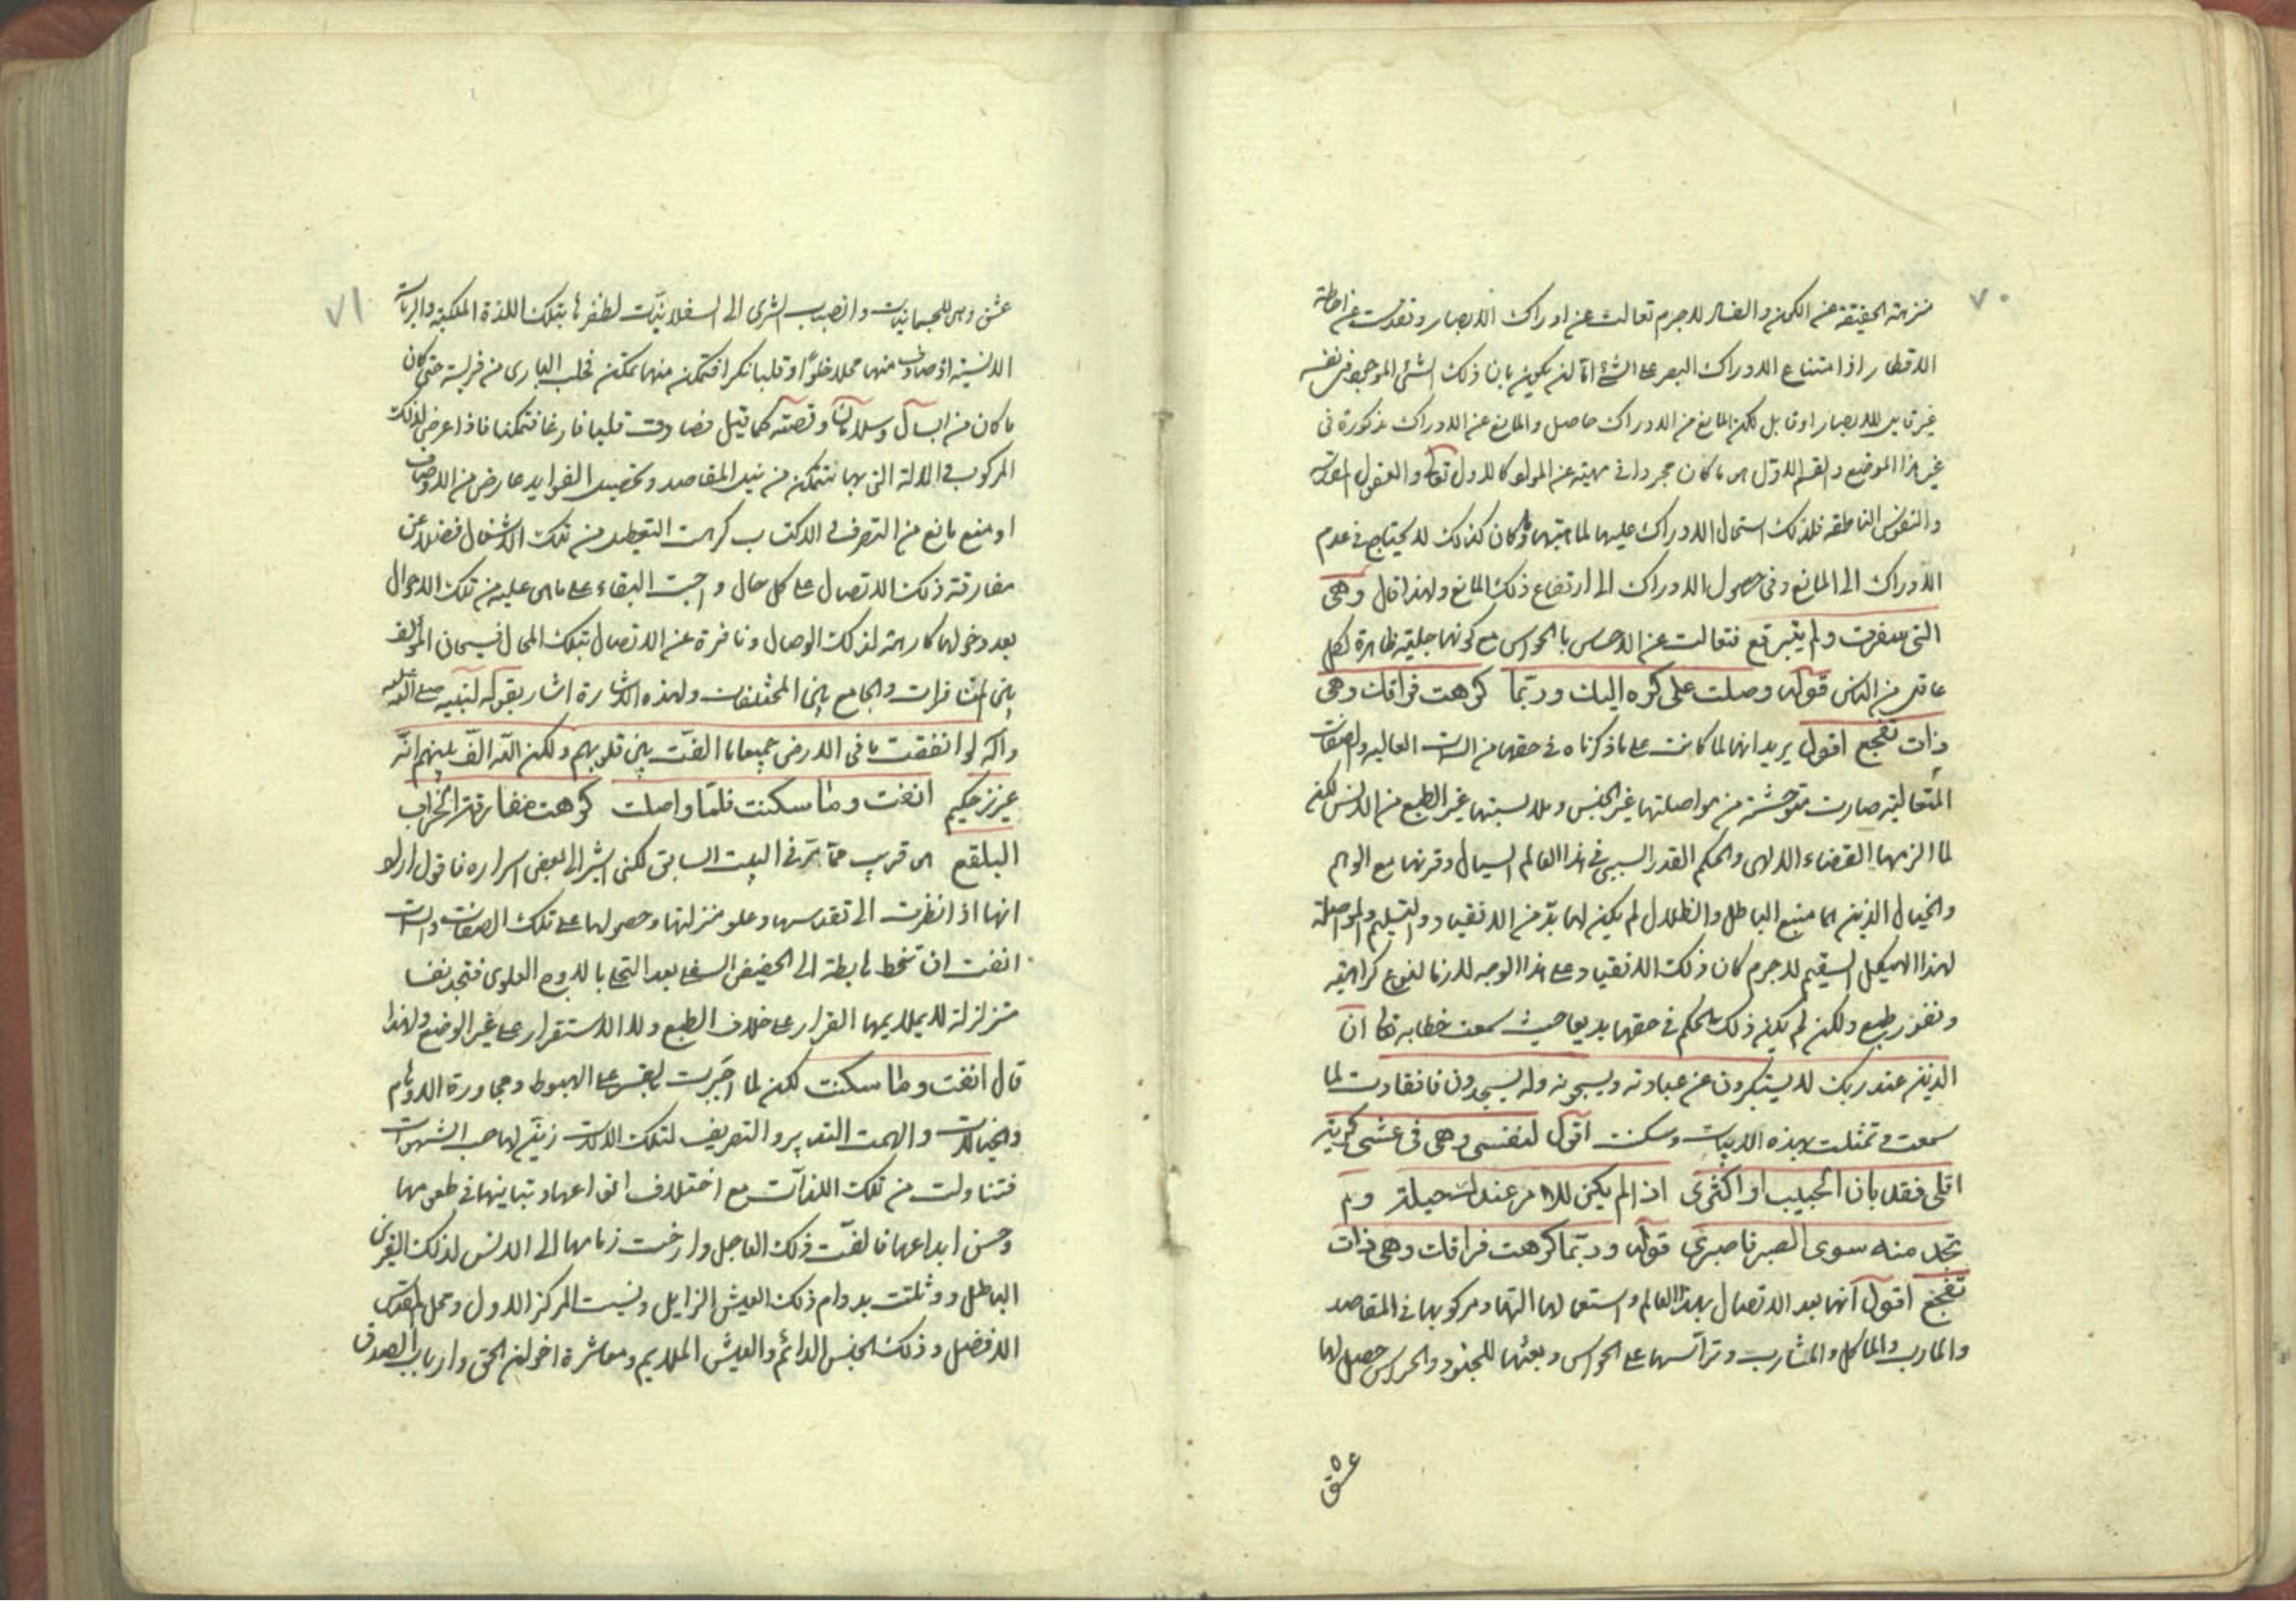 ٧٠
منزهة الحقيقة عن الكون والفساد لا جرم تعالت عن ادراك الابصار وتقدست عن احاطة
الاقطار اذا امتناع الادراك البصر على الشئ اما لن يكون بان ذلك الشئ الموجود في نفسه
غير قابل للابصار او قابل لكن المانع من الادراك حاصل والمانع عن الادراك مذكورة في
غير هذا الموضع والقسم الاول هو ما كان مجردا في مهيته عن المواد كالاول تعا والعقول
والنفوس الناطقة فلذلك استحال الادراك عليها لما هيتها وما كان كذلك لا يحتاج في عدم
الادراك الى المانع وفي حصول الادراك الى ارتفاع ذلك المانع ولهذا قال وهى
التى سفرت ولم يتبرقع فتعالت عن الاحساس بالحواس مع كونها جلية ظاهرة لكل
عاقل من الناس قوله وصلت على كره اليك وربّما كرهت فراقك وهى
ذات تفجع اقول يريد انها لما كانت على ما ذكرناه في حقها من العالية والصفات
المتعالية صارت متوحشة من مواصلتها غير الجنس وملابستها غير الطبع من الانس لكن
لما الزمها القضاء الالهى والحكم القدر السببى في هذا العالم السيال وقرنها مع الوهم
والخيال الذين هما منبع الباطل والظلال لم يكن لها بدّ من الانقياد والتسليم والمواصلة
لهذا الهيكل السقيم لا جرم كان ذلك الانقياد على هذا الوجه للازما لنوع كراهية
ونفور طبع ولكن لم يكن ذلك الحكم في حقها بديعا حيث سمعت خطابه تعا ان
الذين عند ربك لا يستكبرون عن عبادته ويسبحونه وله يسجدون فانقادت لما
سمعت وتمثلت بهذه الابيات وسكنت اقول لنفسى وهى فى عشى كربة
اقلى فقد بان الحبيب او اكثرى اذا لم يكن للامر عندك حيلة ولم
تجد منه سوى الصبر فاصبرى قوله وربّما كرهت فراقك وهى ذات
تفجع اقول انها بعد الاتصال بهذا العالم واستعمالها آلاتها ومركوبها في المقاصد
والمارب والماكل والمشارب وتراسها على الحواس وبعثها للجنود والحراس حصل لها
عشق
٧١
عشق وميل للجسمانيات وانصباب الشرى الى السفلانيّات لظفرها بتلك اللذة الملكية والرياسة
الانسية اذ صادف منها محلا خلوًا وقلبا بكرا فتمكن منها تمكن مخلب البارى من فريسة حتى كان
ما كان من ابسال وسلامان وقصته كما قيل فصادفت قلبا فارغا فتمكنا فاذا عرض لذلك
المركوب والالة التى بها تتمكن من نيل المقاصد وتحصيل الفوايد عارض من الاوصاف
او منع مانع من التصرف في الاكتساب كرهت التعطيل من تلك الاشغال فضلا عن
مفارقة ذلك الاتصال على كل حال واحبت البقاء على ما هى عليه من تلك الاحوال
بعد دخولها كارهة لذلك الوصال ونافرة عن الاتصال بتلك المحال فسبحان المؤلف
بين المتنافرات والجامع بين المختلفات ولهذه الاشارة اشار بقوله لنبيه صلى الله عليه
وآله لو انفقت ما في الارض جميعا ما الفت بين قلوبهم ولكن الله الّف بينهم انّه
عزيز حكيم انفت وما سكنت فلمّا واصلت كرهت مفارقة الخراب
البلقع هو قريب ممّا مرّ في البيت السابق لكنى اشير الى بعض اسراره فاقول اولا
انها اذا نظرت الى تقدسها وعلو منزلتها وحصولها على تلك الصفات
انفت ان تنحط هابطة الى الحضيض السفلى بعد التحلى بالاوج العلوى فتجد نفسا
متزلزلة لا يلايمها القرار على خلاف الطبع ولا الاستقرار على غير الوضع ولهذا
قال انفت وما سكنت لكن لما اجبرت بالقسر على الهبوط ومجاورة الاوهام
والخيالات والهمت التدبير والتصريف لتلك الالات زيّن لها حب الشهوات
فتناولت من تلك اللذّات مع اختلاف انواعها وتباينها في طعومها
وحسن ابداعها فالفت ذلك العاجل وارخت زمامها الى الانس لذلك القرين
الباطل ووثقت بدوام ذلك العيش الزايل ونسيت المركز الاول ومحل القدس
الافضل وذلك الجنس الدائم والعيش الملايم ومعاشرة اخوان الحق وارباب الصدق